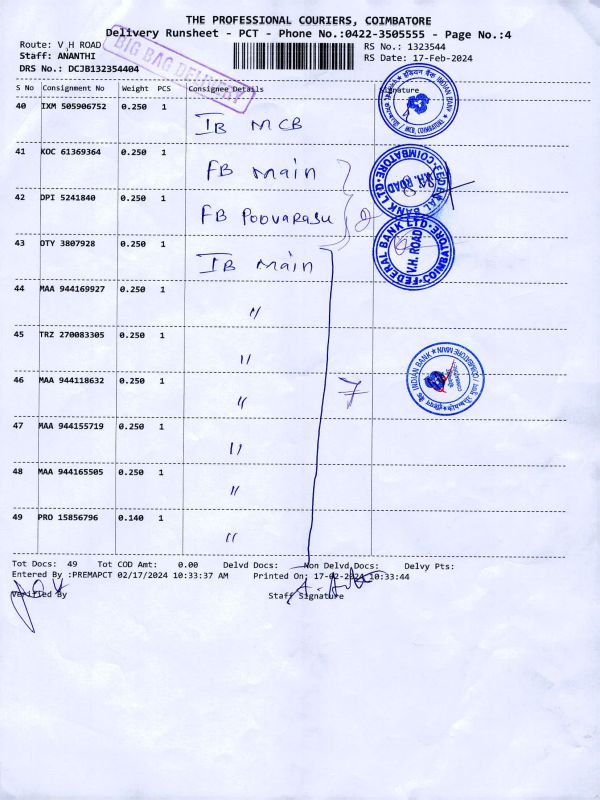 THE PROFESSIONAL COURIERS, COIMBATORE
Delivery Runsheet - PCT - Phone No.:0422-3505555 - Page No.:4
Route: V H ROAD
RS No.: 1323544
Staff: ANANTHI
RS Date: 17-Feb-2024
DRS No.: DCJB132354404
BIG BAG DELIVERY
S No Consignment No Weight PCS Consignee Details Signature
40 IXM 505906752 0.250 1 IB MCB
INDIAN BANK
MCB, COIMBATORE
41 KOC 61369364 0.250 1 FB Main
FEDERAL BANK LTD. COIMBATORE
V.H. ROAD
42 DPI 5241840 0.250 1 FB Podvarasu 2
43 OTY 3807928 0.250 1 IB Main
FEDERAL BANK LTD. COIMBATORE
V.H. ROAD
44 MAA 944169927 0.250 1 "
45 TRZ 270083305 0.250 1 "
46 MAA 944118632 0.250 1 " 7
INDIAN BANK
COIMBATORE MAIN
47 MAA 944155719 0.250 1 "
48 MAA 944165505 0.250 1 "
49 PRO 15856796 0.140 1 "
Tot Docs: 49 Tot COD Amt: 0.00 Delvd Docs: Non Delvd Docs: Delvy Pts:
Entered By :PREMAPCT 02/17/2024 10:33:37 AM Printed On: 17-02-2024 10:33:44
Verified By Staff Signature